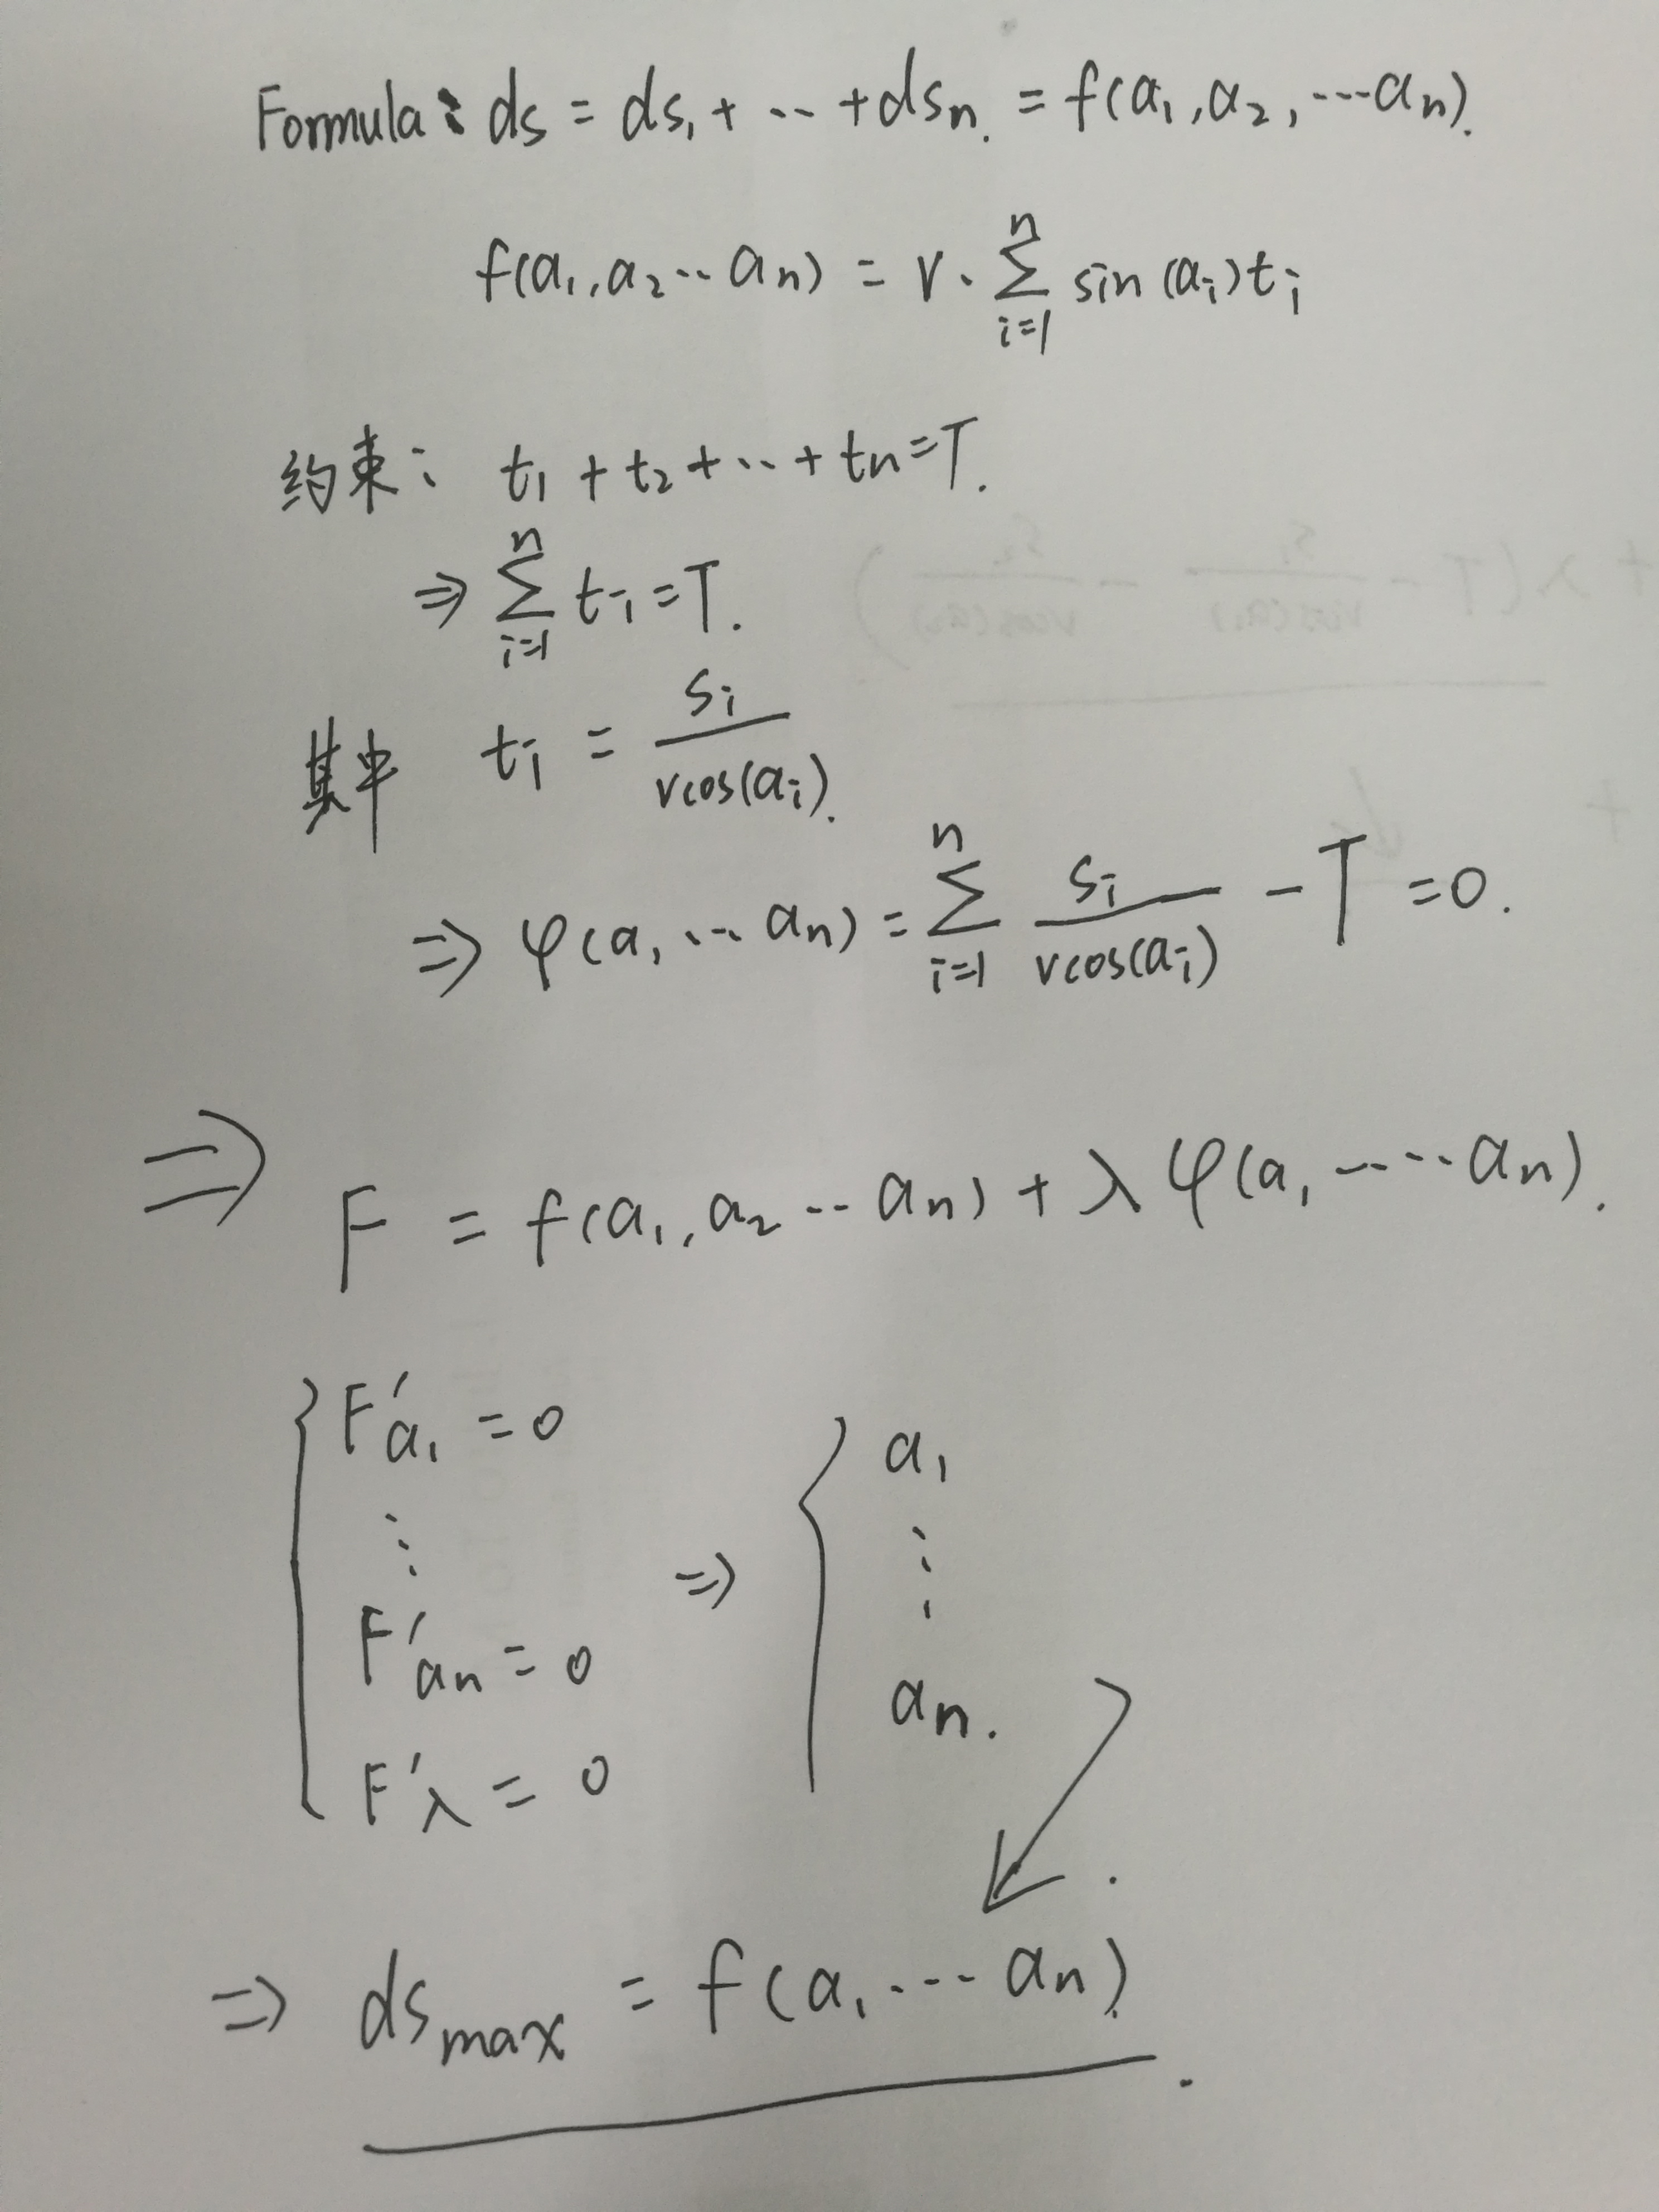 Formula: ds = ds₁ + ... + dsₙ. = f(a₁, a₂, ...aₙ).
f(a₁, a₂...aₙ) = v · ∑ⁿᵢ₌₁ sin(aᵢ)tᵢ
约束: t₁ + t₂ + ... + tₙ = T.
⇒ ∑ⁿᵢ₌₁ tᵢ = T.
其中 tᵢ = sᵢ / vcos(aᵢ).
⇒ φ(a₁ ... aₙ) = ∑ⁿᵢ₌₁ sᵢ / vcos(aᵢ) - T = 0.
⇒ F = f(a₁, a₂...aₙ) + λ φ(a₁, ...aₙ).
{ F'a₁ = 0
⋮
F'aₙ = 0
F'λ = 0
⇒ { a₁
⋮
aₙ.
⇒ ds max = f(a₁...aₙ).